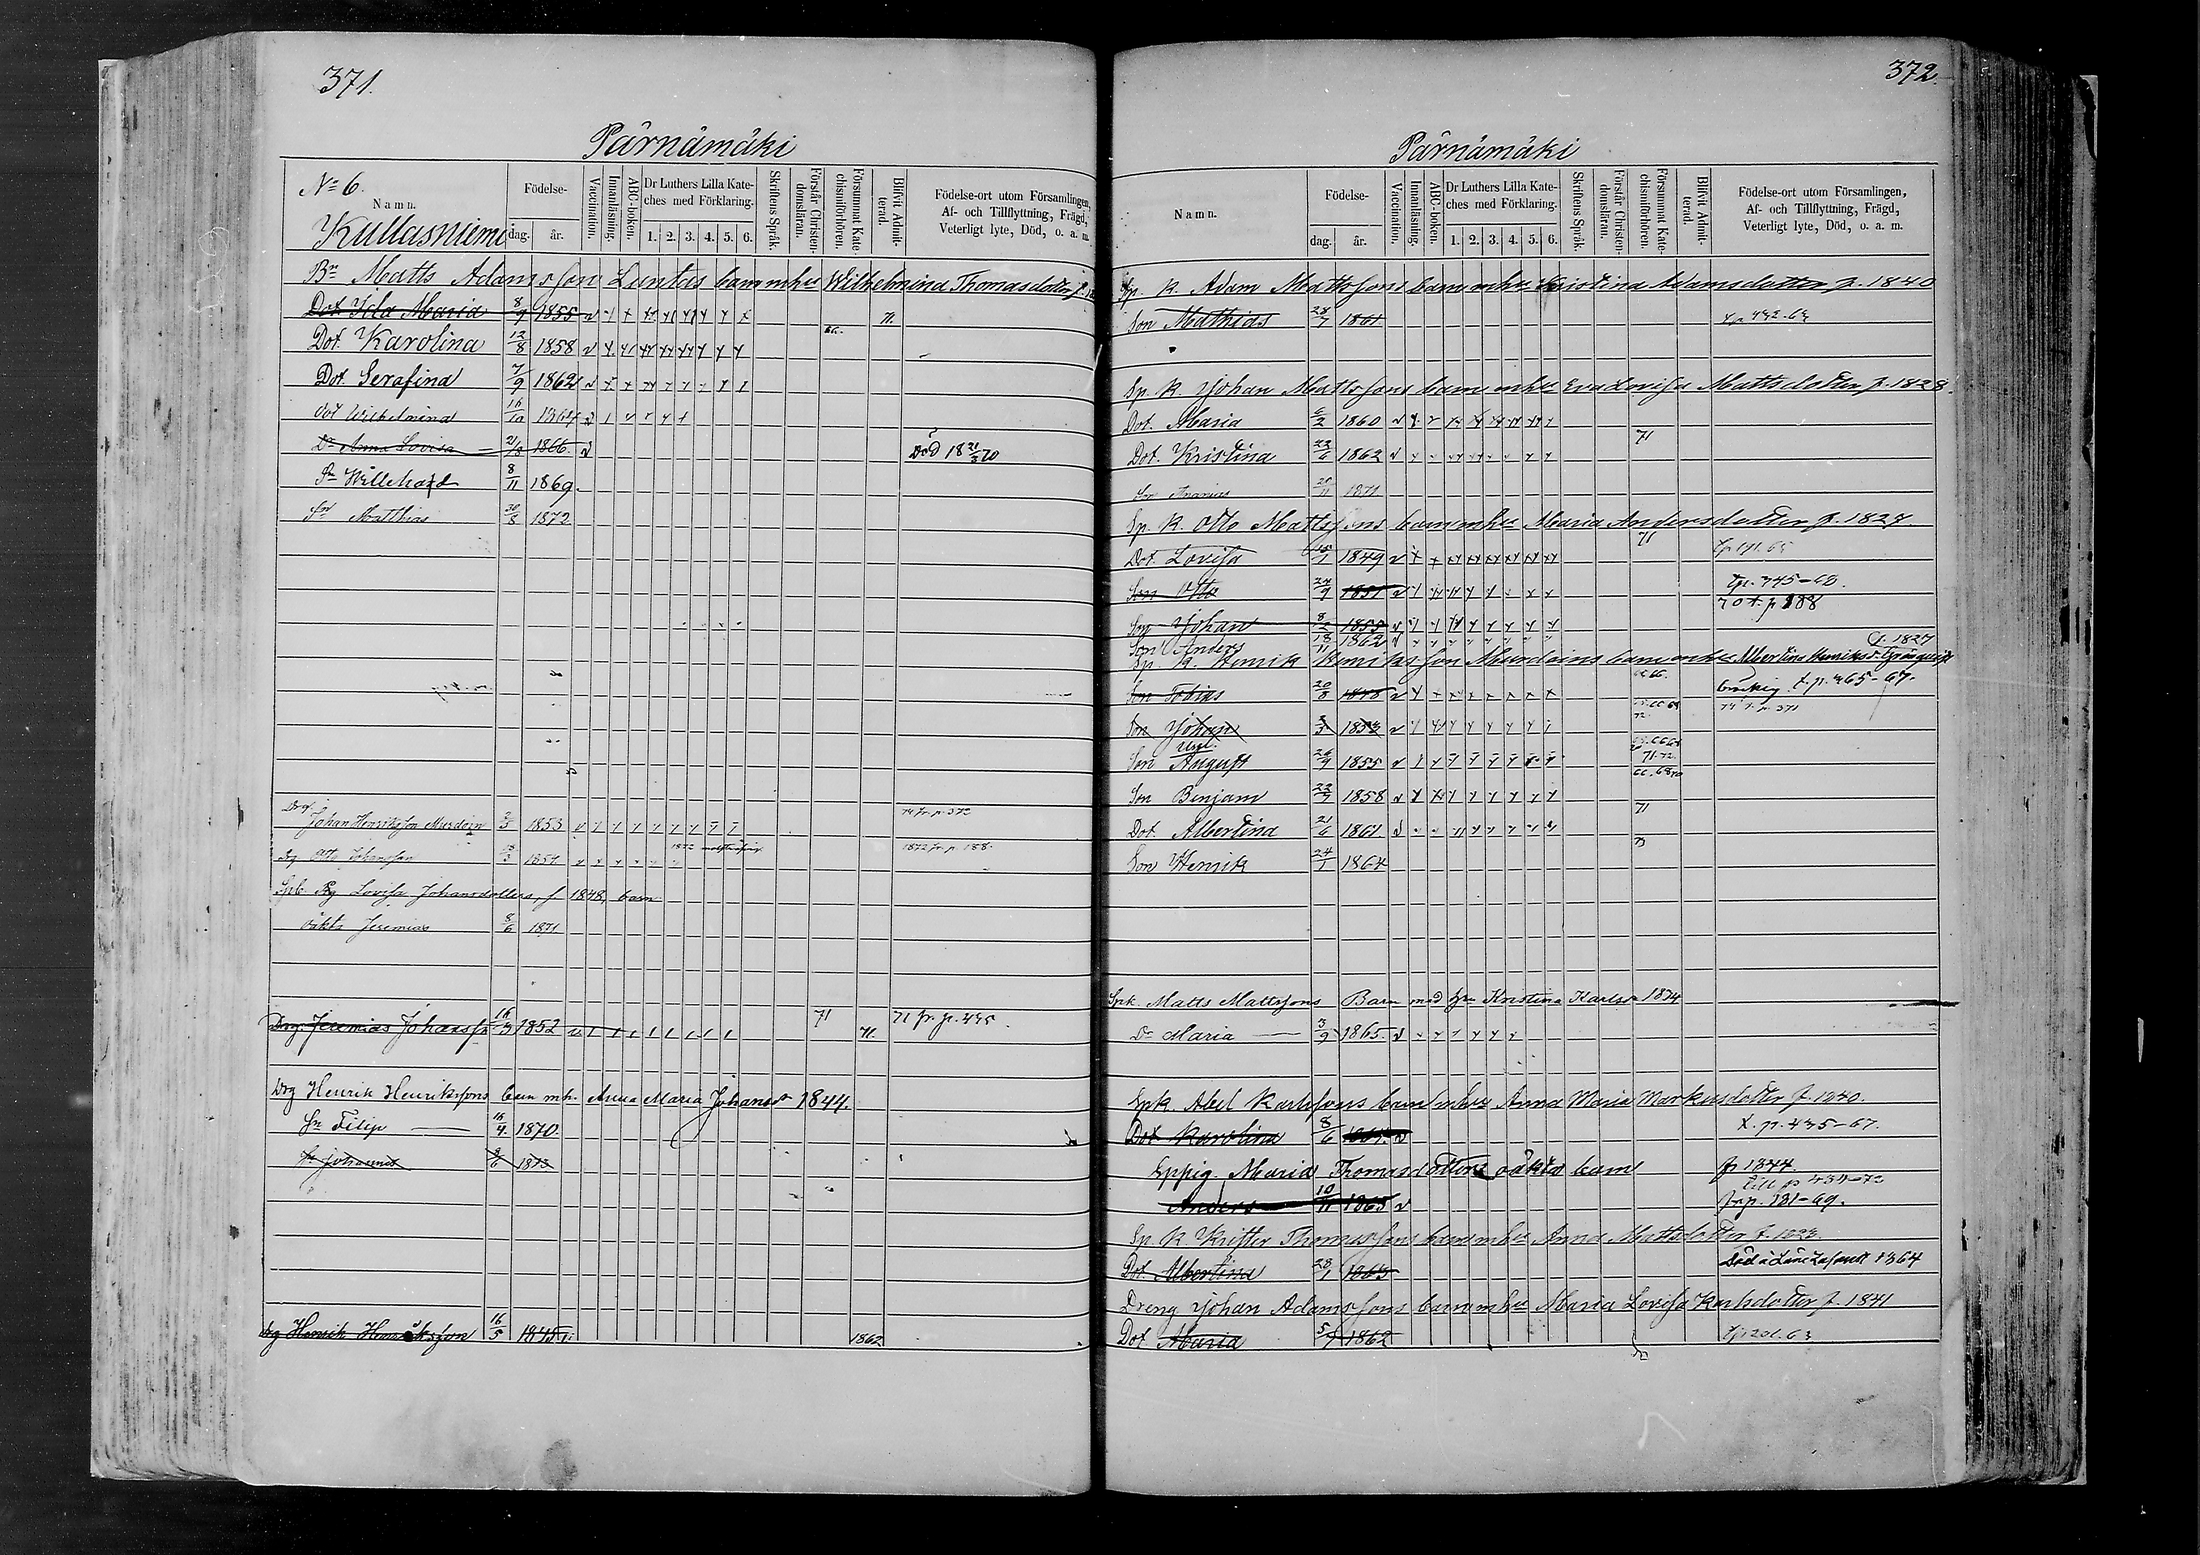 371.
Pärnämäki
No 6.
Namn.
Födelse-
dag. år.
Vaccination.
Innanläsning.
ABC-boken.
Dr Luthers Lilla Kateches med Förklaring.
1. 2. 3. 4. 5. 6.
Skriftens Språk.
Förstår Christendomsläran.
Försummat Katechismiförhören.
Blifvit Admitterad.
Födelse-ort utom Församlingen,
Af- och Tillflyttning, Frägd,
Veterligt lyte, Död, o. a. m.
Kullasniemi
Bn Matts Adamsson Luntas barn mhu Wilhelmina Thomasdotter f.
Dot Ida Maria 8/9 1855 71.
Dot. Karolina 12/8 1858 66.
Dot. Serafina 7/9 1862
dot Wilhelmina 16/10 1864
Dr Anna Lovisa 21/8 1866. Död 18 21/3 70
Sn Willehard 8/11 1869.
Sn Matthias 30/8 1872
Drg. Johan Henriksson Murdoin 3/3 1853 74 fr. p. 372
Dg Otto Johansson 1851 1872 1872 fr. p. 188.
Spb. Pig Lovisa Johansdotters, f 1848, barn
oäkta Jeremias 8/6 1871
Drg. Jeremias Johansso 16/3 1852 71 71. 71 fr. p. 435.
Drg Henrik Henrikssons barn mh. Anna Maria Johansdr 1844.
Sn Filip 16/4. 1870.
Sn Johannes 9/6 1873
drg Henrik Henriksson 16/5 1845. 1862
372.
Pärnämäki
Namn.
Födelse-
dag. år.
Vaccination.
Innanläsning.
ABC-boken.
Dr Luthers Lilla Kateches med Förklaring.
1. 2. 3. 4. 5. 6.
Skriftens Språk.
Förstår Christendomsläran.
Försummat Katechismiförhören.
Blifvit Admitterad.
Födelse-ort utom Församlingen,
Af- och Tillflyttning, Frägd,
Veterligt lyte, Död, o. a. m.
Sp. K. Adam Mattssons barn mhu Kristina Adamsdotter f. 1840
Son Mathias 28/7 1861 t p 432-63
Sp. K. Johan Mattssons barn mhu Eva Lovisa Mattsdotter f. 1828.
Dot. Maria 6/2 1860
Dot. Kristina 22/6 1862 71
Son Ananias 20/11 1871
Sp. K. Otto Mattssons barn mhu Maria Andersdotter f. 1827
Dot. Lovisa 1849 71
Son Otto 24/9 1851 tp. 345-68.
Son Johan 8/2 1855 70 t. p 188
Son Anders 18/11 1862
Sp. K. Henrik Henriksson Murdoins barn mhu Albertina Henriksdr f. 1827
Son Tobias 20/8 1848 66. t. p. 465-67.
Son Johan 3/3 1853 72. 74 t. p. 371
Son August 26/9 1855 71.72.
Son Benjam 22/7 1858 66. 68
Dot. Albertina 21/6 1861 71
Son Henrik 24/1 1864 73
Spk. Matts Mattssons Barn med hu Kristina Karlsdr 1834
Dr Maria 3/9 1865.
Spk. Abel Karlssons barn mhu Anna Maria Markusdotter f. 1840.
Dot Karolina 8/6 t. p. 435-67.
Sppig. Maria Thomasdotters oäkta barn f. 1844
till p 434-72
Anders 10/11 1865 fr p. 181-69.
Sp. K. Krister Thomassons barn mhu Anna Mattsdotter f.
Dot. Albertina 28/1 1863 1864
Dreng Johan Adamssons barn mhu Maria Lovisa Karlsdotter f. 1841
Dot Maria 5/7 1862 tp 201. 63